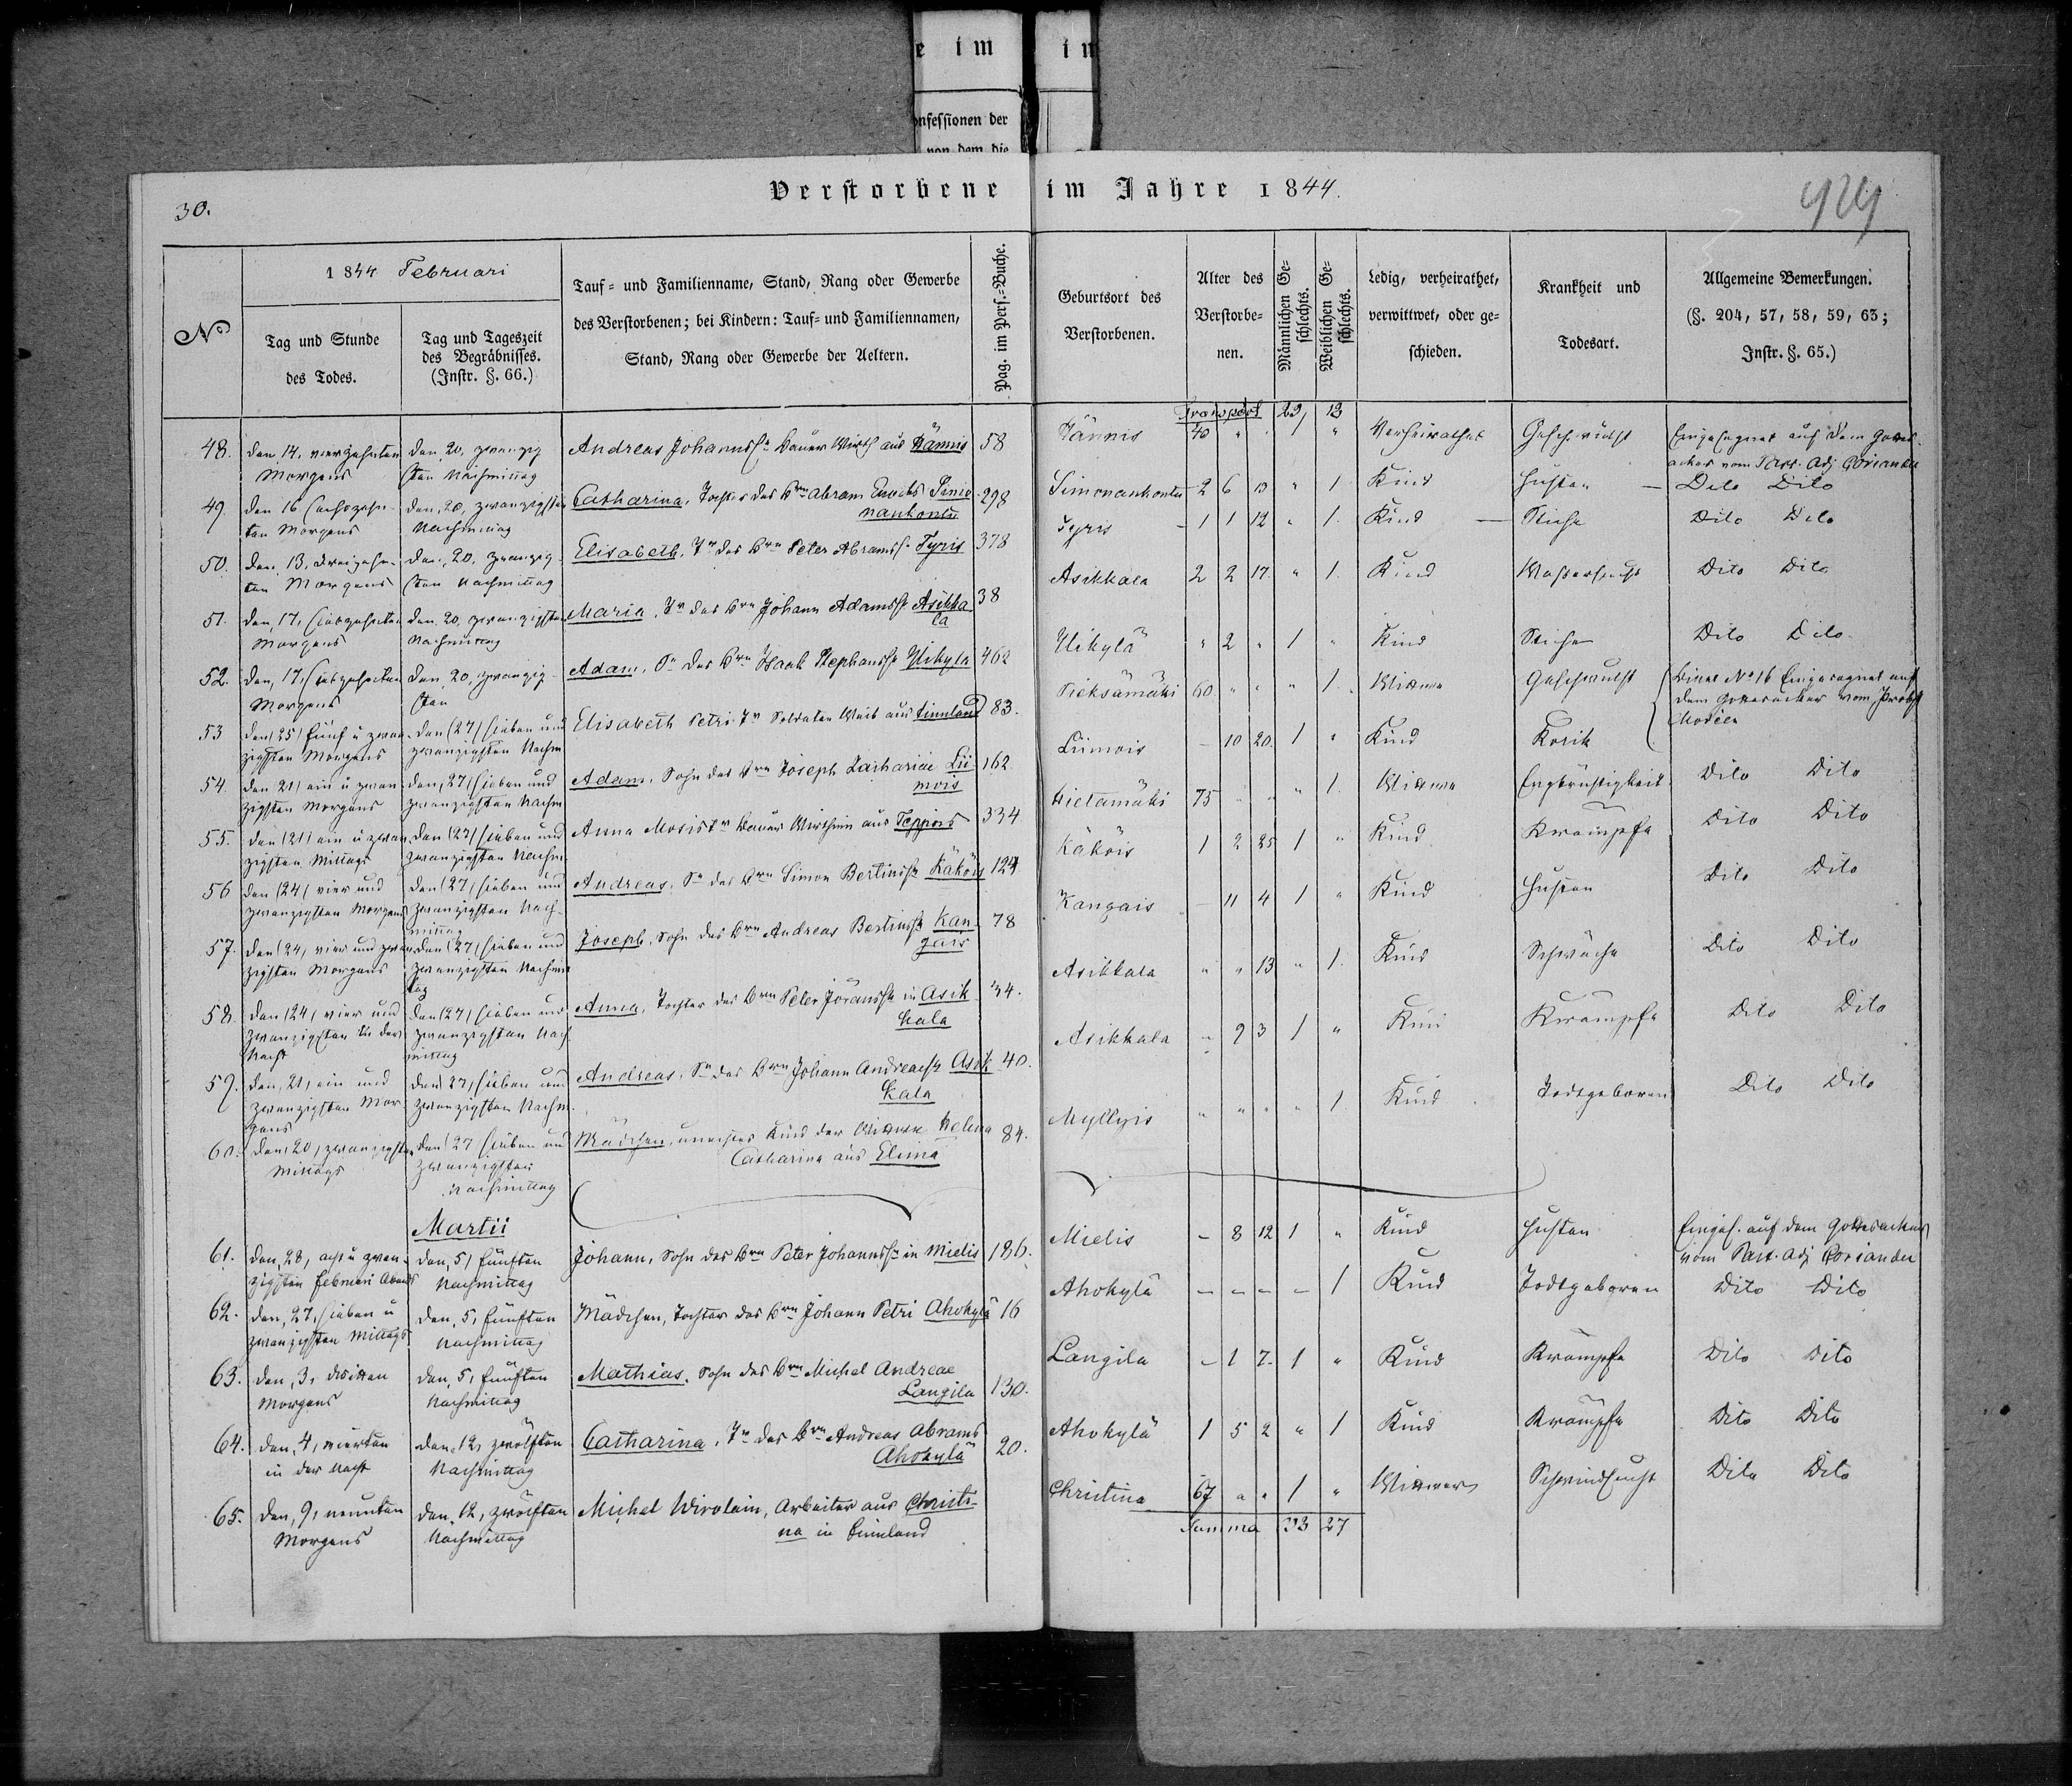 e im im
onfessionen der
von dem die
30. Verstorbene im Jahre 1844. 424
1844 Februari
No
Tag und Stunde des Todes.
Tag und Tageszeit des Begräbnisses. (Instr. §. 66.)
Tauf- und Familienname, Stand, Rang oder Gewerbe des Verstorbenen; bei Kindern: Tauf- und Familiennamen, Stand, Rang oder Gewerbe der Aeltern.
Pag. im Pers.-Buche.
Geburtsort des Verstorbenen.
Alter des Verstorbenen.
Männlichen Geschlechts.
Weiblichen Geschlechts.
Ledig, verheirathet, verwittwet, oder geschieden.
Krankheit und Todesart.
Allgemeine Bemerkungen. (§. 204, 57, 58, 59, 63; Instr. §. 65.)
Transport
48. den 14, vierzehnten Morgens den 20, zwanzigsten Nachmittag Andreas Johannss. Bauer Wirth aus Männis 58 Männis 40 " 1 " Verheirathet Geschwulst Eingesegnet auf dem Gottesacker vom Past. Adj Coriander
49. den 16 sechszehnten Morgens den, 20, zwanzigsten Nachmittag Catharina, Tochter des Brn Abram Simonankontu 298 Simonankontu - 2 6 " 1 Kind Husten - Dito Dito
50. den 13, dreizehnten Morgens den, 20, zwanzigsten Nachmittag Elisabeth, Tr des Brn Peter Abramss. Tyris 378 Tyris - 1 1 12 " 1. Kind - Stiche Dito Dito
51. den, 17, siebzehnten Morgens den 20, zwanzigsten Nachmittag Maria, Tr des Brn Johann Adamss Asikkala 38 Asikkala 2 2 17 " 1. Kind Wassersucht Dito Dito
52. den, 17, siebzehnten Morgens den, 20, zwanzigsten Adam, Sn des Brn Isaak Stephanss Uikylä 462 Uikylä " 2 " 1 " Kind Stiche Dito Dito
53 den (25) fünf u zwanzigsten Morgens den (27) sieben und zwanzigsten Nachm Elisabeth Petri Tr Soldaten Weib aus Finnland 83. Pieksämäki 60 " " " 1. Wittwe Geschwulst No 16 Eingesegnet auf dem Gottesacker vom Probst
54. den 21) ein u zwanzigsten Morgens den, 27) sieben und zwanzigsten Nachm Adam, Sohn des Brn Joseph Zachariae Liimois 162 Liimois - 10 20. 1 " Kind Korik Dito Dito
55. den (21) ein u zwanzigsten Mittags den (27) sieben und zwanzigsten Nachm. Anna Mosis Tr Bauer Wirthin aus Teppois 334 Hietamäki 75 " " " 1. Wittwe Engbrüstigkeit Dito Dito
56 den (24) vier und zwanzigsten Morgens den (27) sieben und zwanzigsten Nachmittag Andreas, Sn des Brn Simon Bertinss Käköis 124 Käköis 1 2 25 1 " Kind Krämpfe Dito Dito
57. den (24) vier und zwanzigsten Morgens den (27) sieben und zwanzigsten Nachmittag Joseph, Sohn des Brn Andreas Bertinss Kangais 78 Kangais - 11 4 1 " Kind Husten Dito Dito
58. den (24) vier und zwanzigsten in der Nacht den (27) sieben und zwanzigsten Nachmittag Anna, Tochter des Brn Peter Jöranss in Asikkala 34. Asikkala " " 13 " 1. Kind Schwäche Dito Dito
59. den, 21, ein und zwanzigsten Morgens den 27, sieben und zwanzigsten Nachm. Andreas, Sn des Brn Johann Andreass Asikkala 40. Asikkala " 9 3 1 " Kind Krämpfe Dito Dito
60. den 20, zwanzigsten Mittags den (27 sieben und zwanzigsten Nachmittag Mädchen, unechtes Kind der Wittwe Helena Catharina aus Elimä 84. Myllyis " " " " 1 Kind Todtgeboren Dito Dito
Martii
61. den, 28, acht u zwanzigsten Februari Abends den, 5) fünften Nachmittag Johann, Sohn des Brn Peter Johannss in Mielis 186. Mielis - 8 12 1 " Kind Husten Einges. auf dem Gottesacker vom Past. Adj Coriander
62. den, 27, sieben u zwanzigsten Mittags den, 5, fünften Nachmittag Mädchen, Tochter des Brn Johann Petri Ahokylä 16 Ahokylä - - - - 1 Kind Todtgeboren Dito Dito
63. den, 3, dritten Morgens den, 5, fünften Nachmittag Mathias, Sohn des Brn Michel Andreae Langila 130. Langila - 1 7. 1 " Kind Krämpfe Dito Dito
64. den, 4, vierten in der Nacht den 12, zwölften Nachmittag Catharina, Tr des Brn Andreas Abrams Ahokylä 20. Ahokylä 1 5 2 " 1 Kind Krämpfe Dito Dito
65. den, 9, neunten Morgens den, 12, zwölften Nachmittag Michel Wirolain, Arbeiter aus Christina in Finnland Christina 67 " " 1 " Wittwer Schwindsucht Dito Dito
Summa 33 27